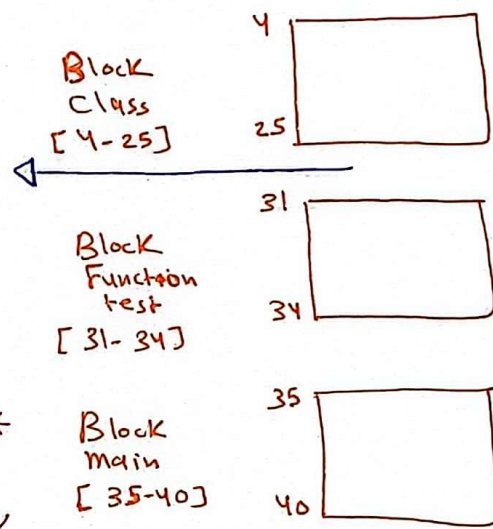 Block
Class
[4-25]
4
25
Block
Function
test
[31-34]
31
34
Block
main
[35-40]
35
40